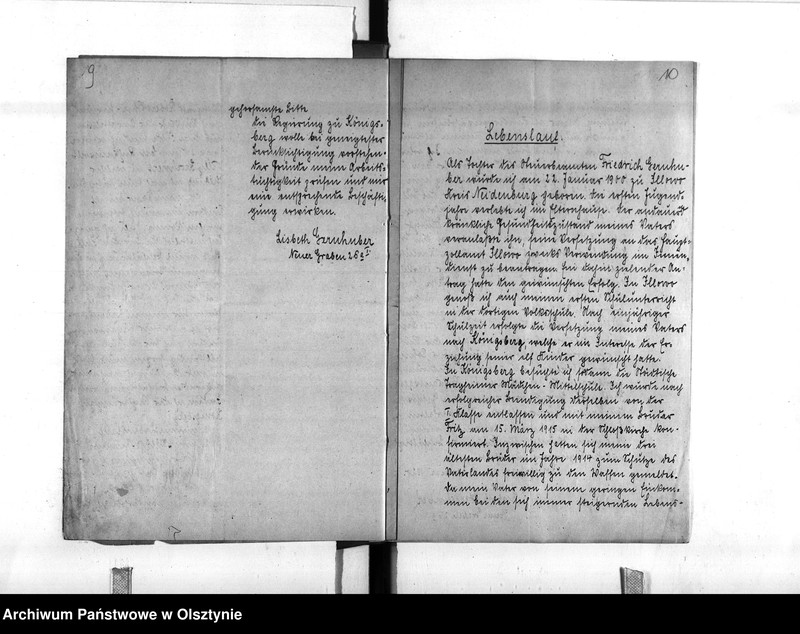 9
gehorsamste Bitte
die Regierung zu Königs-
berg wolle bei geneigtester
Berücksichtigung vorstehen-
der Gründe meine Arbeits-
tüchtigkeit prüfen und mir
eine entsprechende Beschäfti-
gung erwirken.
Lisbeth Gernhuber
Neuer Graben 25
10
Lebenslauf.
Als Tochter des Friedrich Gernhu-
ber wurde ich am 22. Januar 1900 zu Illowo
Kreis Neidenburg geboren. Die ersten Jugend-
jahre verlebte ich im Elternhause. Der andauernd
kränkliche Gesundheitszustand meines Vaters
veranlaßte ihn, seine Versetzung an das Haupt-
zollamt Illowo zwecks Verwendung im Innen-
dienst zu beantragen. Sein dahin zielender An-
trag hatte den gewünschten Erfolg. In Illowo
genoß ich auch meinen ersten Schulunterricht
in der dortigen Volksschule. Nach einjähriger
Schulzeit erfolgte die Versetzung meines Vaters
nach Königsberg, welche er im Interesse der Er-
ziehung seiner elf Kinder gewünscht hatte.
In Königsberg besuchte ich sodann die Städtische
Tragheimer Mädchen-Mittelschule. Ich wurde nach
erfolgreicher Beendigung derselben von der
I. Klasse entlassen und mit meinem Bruder
Fritz am 15. März 1915 in der Schloßkirche kon-
firmiert. Inzwischen hatten sich meine drei
ältesten Brüder im Jahre 1914 zum Schutze des
Vaterlandes freiwillig zu den Waffen gemeldet.
Da mein Vater von seinem geringen Einkom-
men bei den sich immer steigernden Lebens-
Archiwum Państwowe w Olsztynie